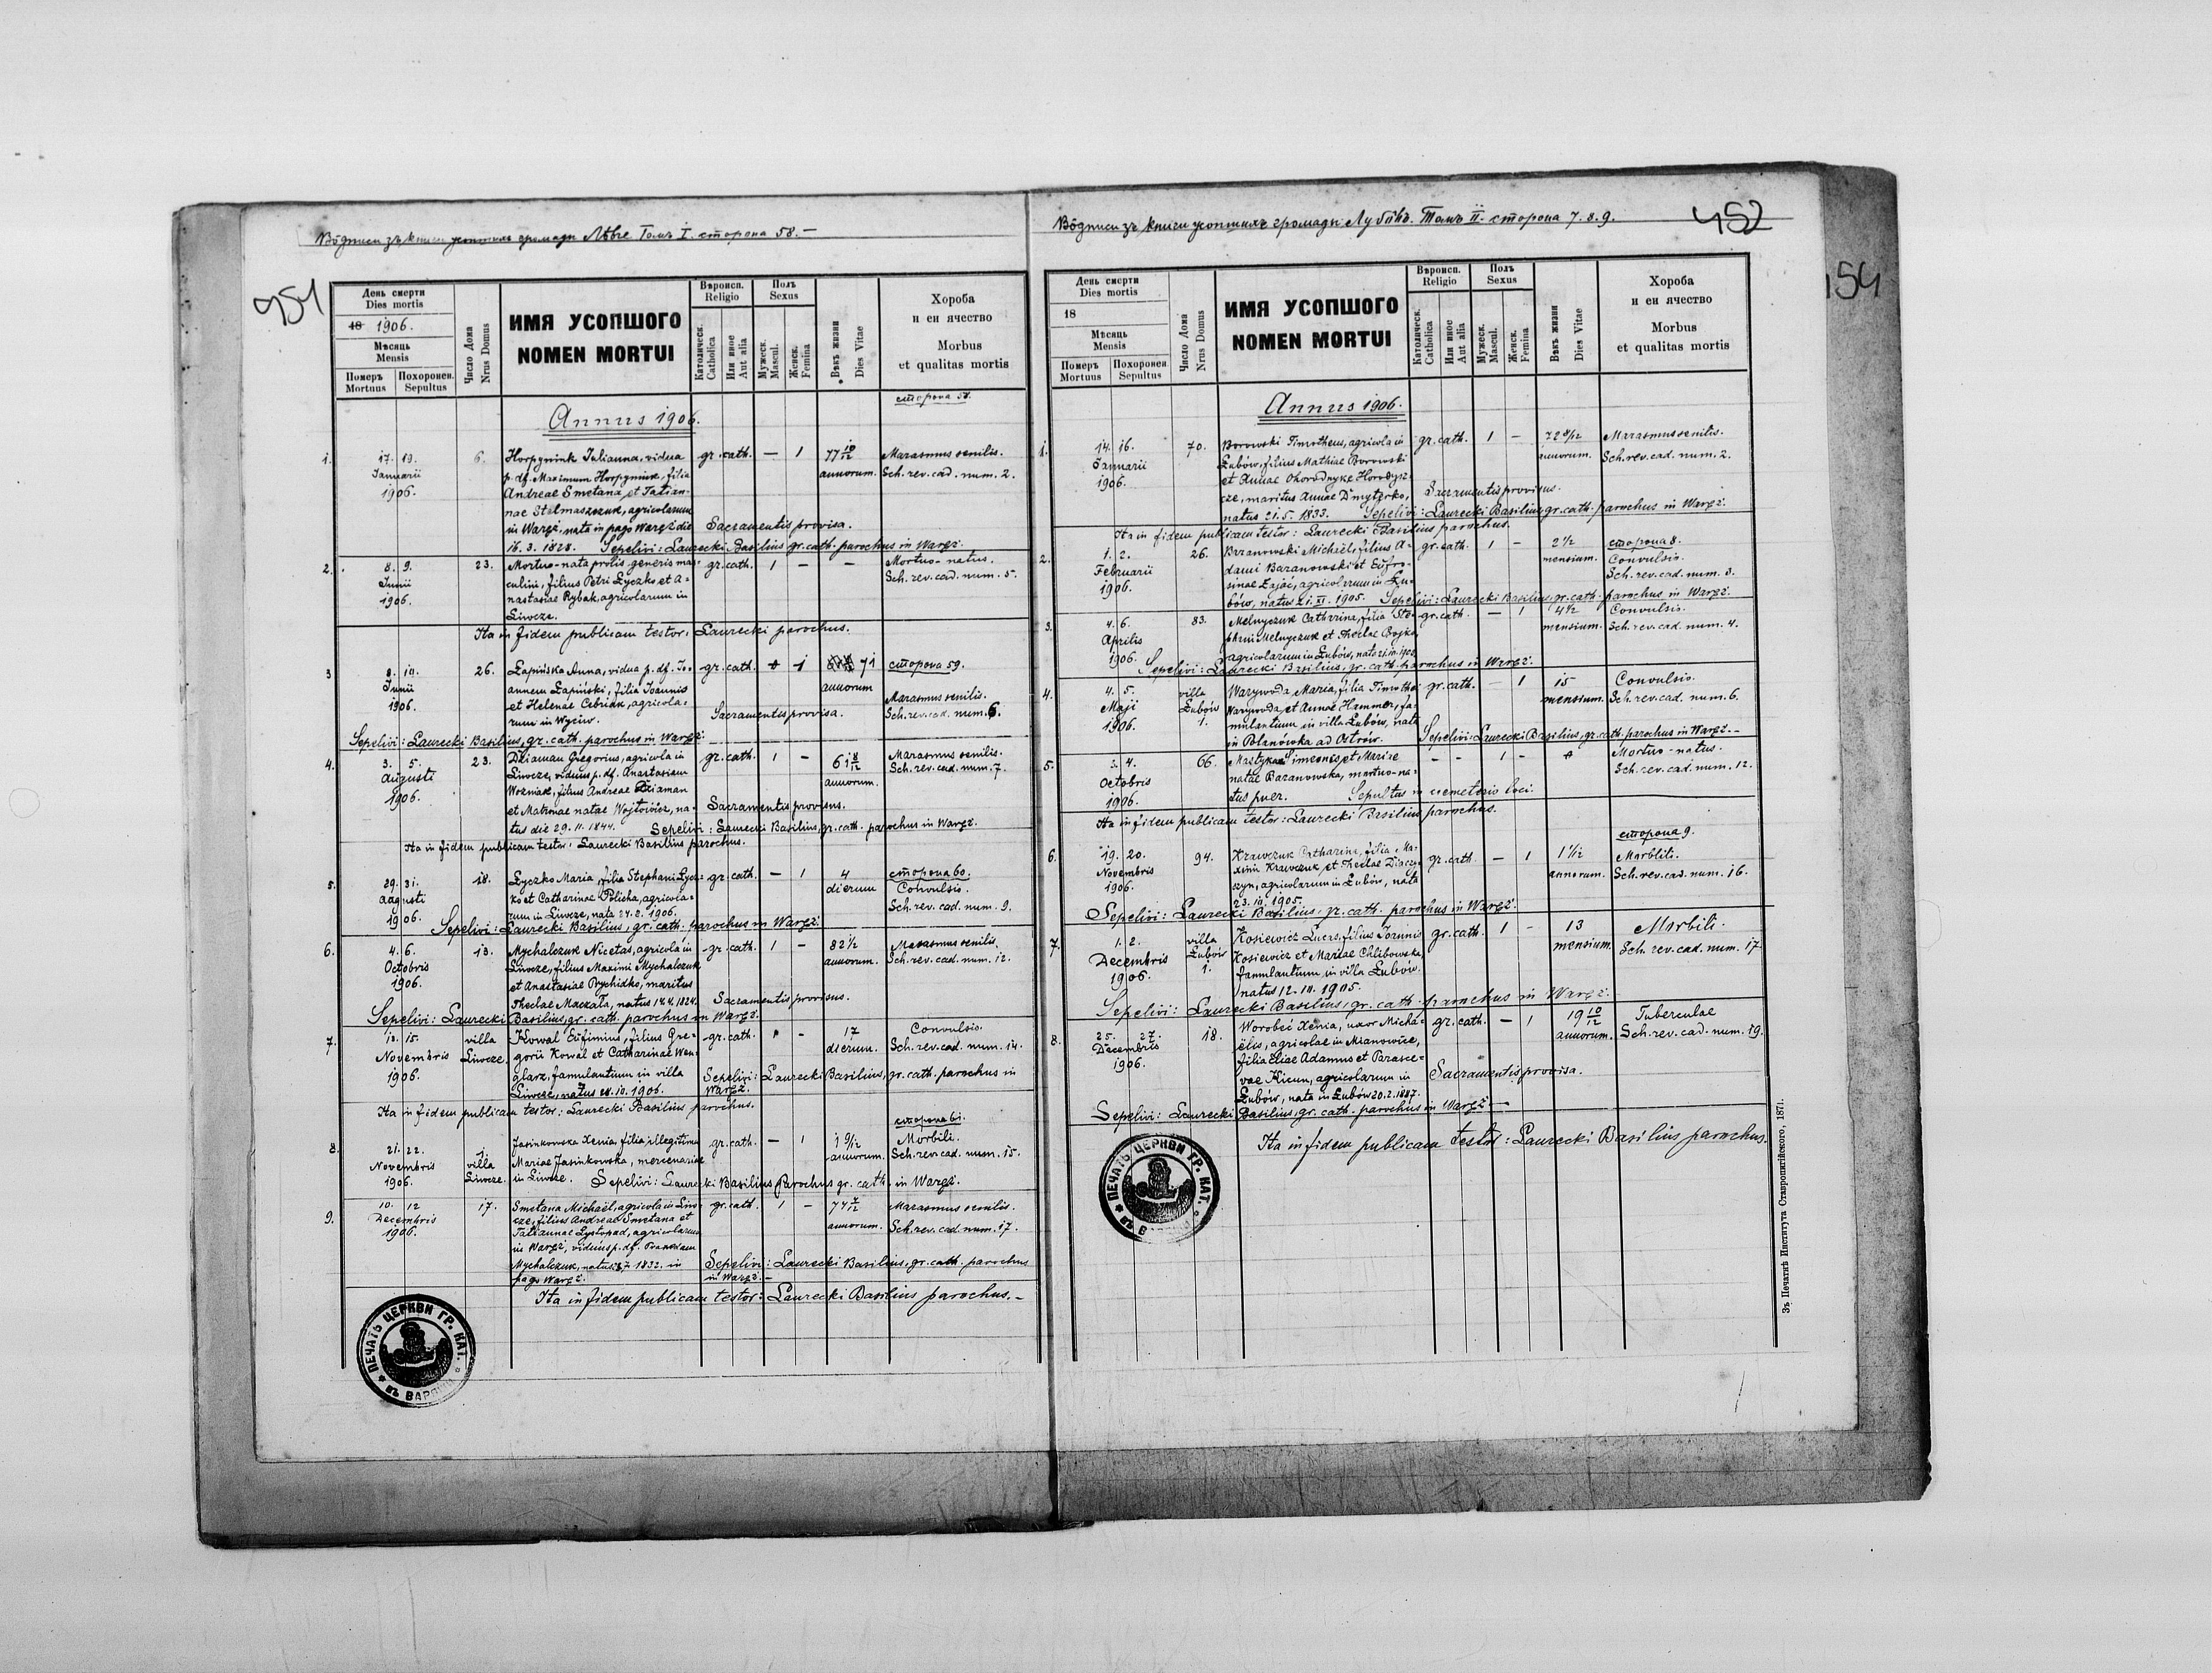 Вôдписи зъ книги усопшихъ громады Лѣвче Томъ I. сторона 58.—
451
День смерти
Dies mortis
18 1906.
Мѣсяць
Mensis
Померъ
Mortuus
Похоронен.
Sepultus
Число Дома
Nrus Domus
ИМЯ УСОПШОГО
NOMEN MORTUI
Вѣроисп.
Religio
Католическ.
Catholica
Или иное
Aut alia
Полъ
Sexus
Мужеск.
Mascul.
Женск.
Femina
Вѣкъ жизни
Dies Vitae
Хороба
и еи ячество
Morbus
et qualitas mortis
сторона 58.
Annus 1906.
1. 17. 19. 6. Horpyniuk Julianna, vidua gr. cath. — 1 77 10/12 Marasmus senilis.
Januarii p. df. Maximum Horpyniuk, filia annorum. Sch. rev. cad. num. 2.
1906. Andreae Smetana et Tatian-
nae Stelmaszczuk, agricolarum
in Waręż, nata in pago Waręż die Sacramentis provisa.
16. 3. 1828. Sepelivi: Laurecki Basilius gr. cath. parochus in Waręż.
2. 8. 9. 23. Mortuo-nata prolis generis mas- gr. cath. 1 — — Mortuo-natus.
Junii culini, filius Petri Łyczko et A- Sch. rev. cad. num. 5.
1906. nastasiae Rybak, agricolarum in
Liwcze.
Ita in fidem publicam testor: Laurecki parochus.
3 8. 10. 26. Łapińska Anna, vidua p. df. Jo- gr. cath. 1 71 сторона 59.
Junii annem Łapiński, filia Joannis annorum Marasmus senilis.
1906. et Helenae Cebriak, agricola- Sch. rev. cad. num. 6.
rum in Wyciw. Sacramentis provisa.
Sepelivi: Laurecki Basilius, gr. cath. parochus in Waręż.
4. 3. 5. 23. Dziaman Gregorius, agricola in gr. cath. 1 — 61 8/12 Marasmus senilis.
Augusti Liwcze, viduus p. df. Anastasiam annorum. Sch. rev. cad. num. 7.
1906. Wozniak, filius Andreae Dziaman
et Matronae natae Wojtowicz, na- Sacramentis provisus.
tus die 29. 11. 1844. Sepelivi: Laurecki Basilius, gr. cath. parochus in Waręż.
Ita in fidem publicam testor: Laurecki Basilius parochus.
5. 29. 31. 18. Łyczko Maria, filia Stephani Łycz- gr. cath. — 1 4 сторона 60.
Augusti ko et Catharinae Policha, agricola- dierum Convulsio.
1906. rum in Liwcze, nata 24. 8. 1906. Sch. rev. cad. num. 9.
Sepelivi: Laurecki Basilius, gr. cath. parochus in Waręż.
6. 4. 6. 13. Mychalczuk Nicetas, agricola in gr. cath. 1 — 82 1/2 Marasmus senilis.
Octobris Liwcze, filius Maximi Mychalczuk annorum. Sch. rev. cad. num. 12.
1906. et Anastasiae Prychidko, maritus
Theclae Maczała, natus 14. 4. 1824. Sacramentis provisus.
Sepelivi: Laurecki Basilius, gr. cath. parochus in Waręż.
7. 13. 15. villa Kowal Eufimius, filius Gre- gr. cath. 1 — 17 Convulsio.
Novembris Liwcze gorii Kowal et Catharinae Wen- dierum. Sch. rev. cad. num. 14.
1906. glarz, famulantium in villa Sepelivi: Laurecki Basilius, gr. cath. parochus in
Liwcze, natus 28. 10. 1906. Waręż.
Ita in fidem publicam testor: Laurecki Basilius parochus.
сторона 61.
8. 21. 22. 1. Jasinkowska Xenia, filia illegitima gr. cath. — 1 1 9/12 Morbili.
Novembris villa Mariae Jasinkowska, mercenariae annorum. Sch. rev. cad. num. 15.
1906. Liwcze. in Liwcze. Sepelivi: Laurecki Basilius Parochus gr. cath. in Waręż.
9. 10. 12 17. Smetana Michaël, agricola in Liw- gr. cath. 1 — 74 5/12 Marasmus senilis.
Decembris cze, filius Andreae Smetana et annorum. Sch. rev. cad. num. 17.
1906. Tatiannae Lystopad, agricolarum
in Waręż, viduus p. df.
Mychalczuk, natus 1832. in Sepelivi: Laurecki Basilius, gr. cath. parochus
pago Waręż. in Waręż.—
Ita in fidem publicam testor: Laurecki Basilius parochus.—
ПЕЧАТЬ ЦЕРКВИ ГР. КАТ. ВЪ ВАРЯЖИ
Вôдписи зъ книги усопшихъ громады Лубôвъ. Томъ II. сторона 7. 8. 9.
452
День смерти
Dies mortis
18
Мѣсяць
Mensis
Померъ
Mortuus
Похоронен
Sepultus
Число Дома
Nrus Domus
ИМЯ УСОПШОГО
NOMEN MORTUI
Вѣроисп.
Religio
Католическ.
Catholica
Или иное
Aut alia
Полъ
Sexus
Мужеск.
Mascul.
Женск.
Femina
Вѣкъ жизни
Dies Vitae
Хороба
и еи ячество
Morbus
et qualitas mortis
Annus 1906.
1. 14. 16. 70. Borowski Timotheus, agricola in gr. cath. 1 — 72 8/12 Marasmus senilis.
Januarii Łubów, filius Mathiae Borowski annorum. Sch. rev. cad. num. 2.
1906. et Annae Ohorodnyke Horodysz-
cze, maritus Annae Dmyterko, Sacramentis provisus.
natus 21. 5. 1833. Sepelivi: Laurecki Basilius, gr. cath. parochus in Waręż.
Ita in fidem publicam testor: Laurecki Basilius parochus.
2. 1. 2. 26. Baranowski Michaël, filius A- gr. cath. 1 — 2 1/2 сторона 8.
Februarii dami Baranowski et Eufro- mensium. Convulsio.
1906. sinae Zając, agricolarum in Łu- Sch. rev. cad. num. 3.
bów, natus 21. XI. 1905. Sepelivi: Laurecki Basilius, gr. cath. parochus in Waręż.
3. 4. 6. 83. Melnyczuk Catharina, filia Ste- gr. cath. — 1 4 1/2 Convulsio.
Aprilis phani Melnyczuk et Theclae Bojko, mensium. Sch. rev. cad. num. 4.
1906. agricolarum in Łubów,
Sepelivi: Laurecki Basilius, gr. cath. parochus in Waręż.
4. 4. 5. villa Warywoda Maria, filia Timothei gr. cath. — 1 15 Convulsio.
Maji Łubów Warywoda et Annae Hammer, fa- mensium. Sch. rev. cad. num. 6.
1906. 1. mulantium in villa Łubów, nata
in Polanówka ad Ostrów. Sepelivi: Laurecki Basilius, gr. cath. parochus in Waręż.—
5. 3. 4. 66. Mastykasz Simeonis et Mariae - - 1 - Mortuo-natus.
Octobris natae Baranowska, mortuo-na- Sch. rev. cad. num. 12.
1906. tus puer. Sepultus in cemeterio loci.
Ita in fidem publicam testor: Laurecki Basilius parochus.
сторона 9.
6. 19. 20. 94. Krawczuk Catharina, filia Ma- gr. cath. — 1 1 1/12 Morbili.
Novembris ximi Krawczuk et Theclae Diacz- annorum. Sch. rev. cad. num. 16.
1906. szyn, agricolarum in Łubów, nata
23. 10. 1905.
Sepelivi: Laurecki Basilius, gr. cath. parochus in Waręż.
7. 1. 2. villa Kosiewicz Lucas, filius Joannis gr. cath. 1 — 13 Morbili.
Decembris Łubów Kosiewicz et Mariae Chlibowska, mensium. Sch. rev. cad. num. 17
1906. 1. famulantium in villa Łubów.
natus 12. 10. 1905.
Sepelivi: Laurecki Basilius, gr. cath. parochus in Waręż.
8. 25. 27. 18. Worobeć Xenia, uxor Micha- gr. cath. — 1 19 10/12 Tuberculae
Decembris ëlis, agricolae in Mianowice, annorum. Sch. rev. cad. num. 19.
1906. filia Eliae Adamus et Parasce-
vae Kicun, agricolarum in Sacramentis provisa.
Łubów, nata in Łubów 20. 2. 1887.
Sepelivi: Laurecki Basilius, gr. cath. parochus in Waręż—
Ita in fidem publicam testor: Laurecki Basilius parochus.
ПЕЧАТЬ ЦЕРКВИ ГР. КАТ.
Зъ Печатнѣ Института Ставропигійского, 1871.